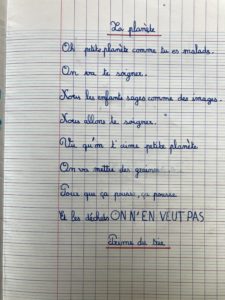 La planète
Oh petite planète comme tu es malade.
On va te soigner.
Nous les enfants sages comme des images.
Nous allons te soigner.
Vu qu'on t'aime petite planète
On va mettre des graines
Pour que ça pousse, ça pousse
Et les déchets ON N'EN VEUT PAS
Poème du